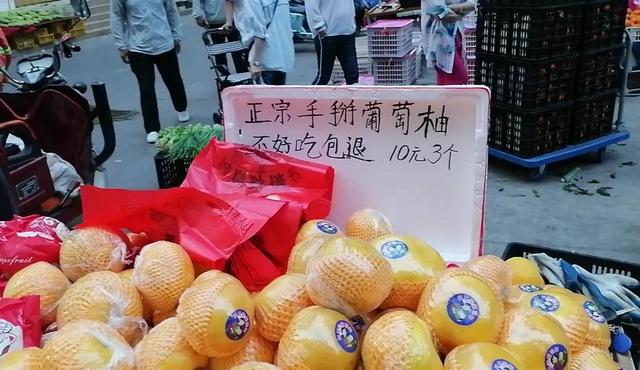 正宗手掰葡萄柚
不好吃包退 10元3个